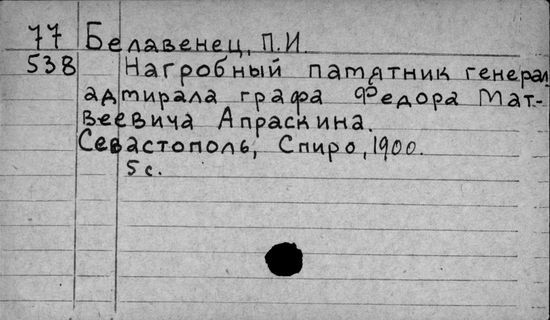 77 Белавенец, П.И.
538 Нагробный памятник генерал
адмирала графа Федора Мат-
веевича Апраскина.
Севастополь, Спиро, 1900.
5 с.